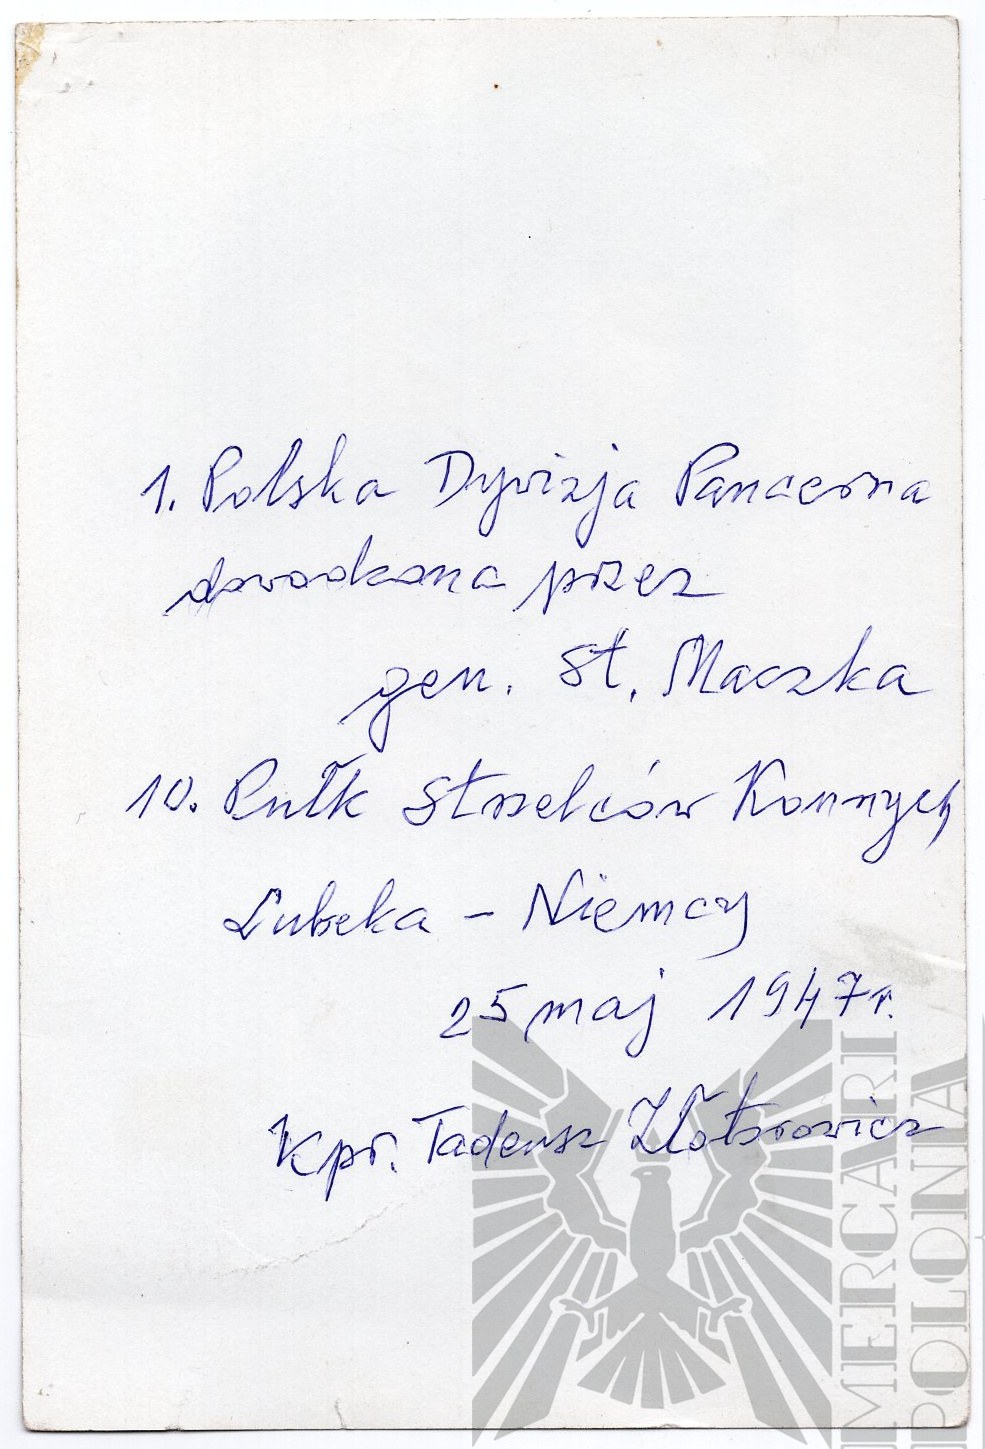 1. Polska Dywizja Pancerna
dowodzona przez
gen. St. Maczka
10. Pułk Strzelców Konnych
Lubeka – Niemcy
25 maj 1947 r.
Kpr. Tadeusz
MERCARI
POLONIA